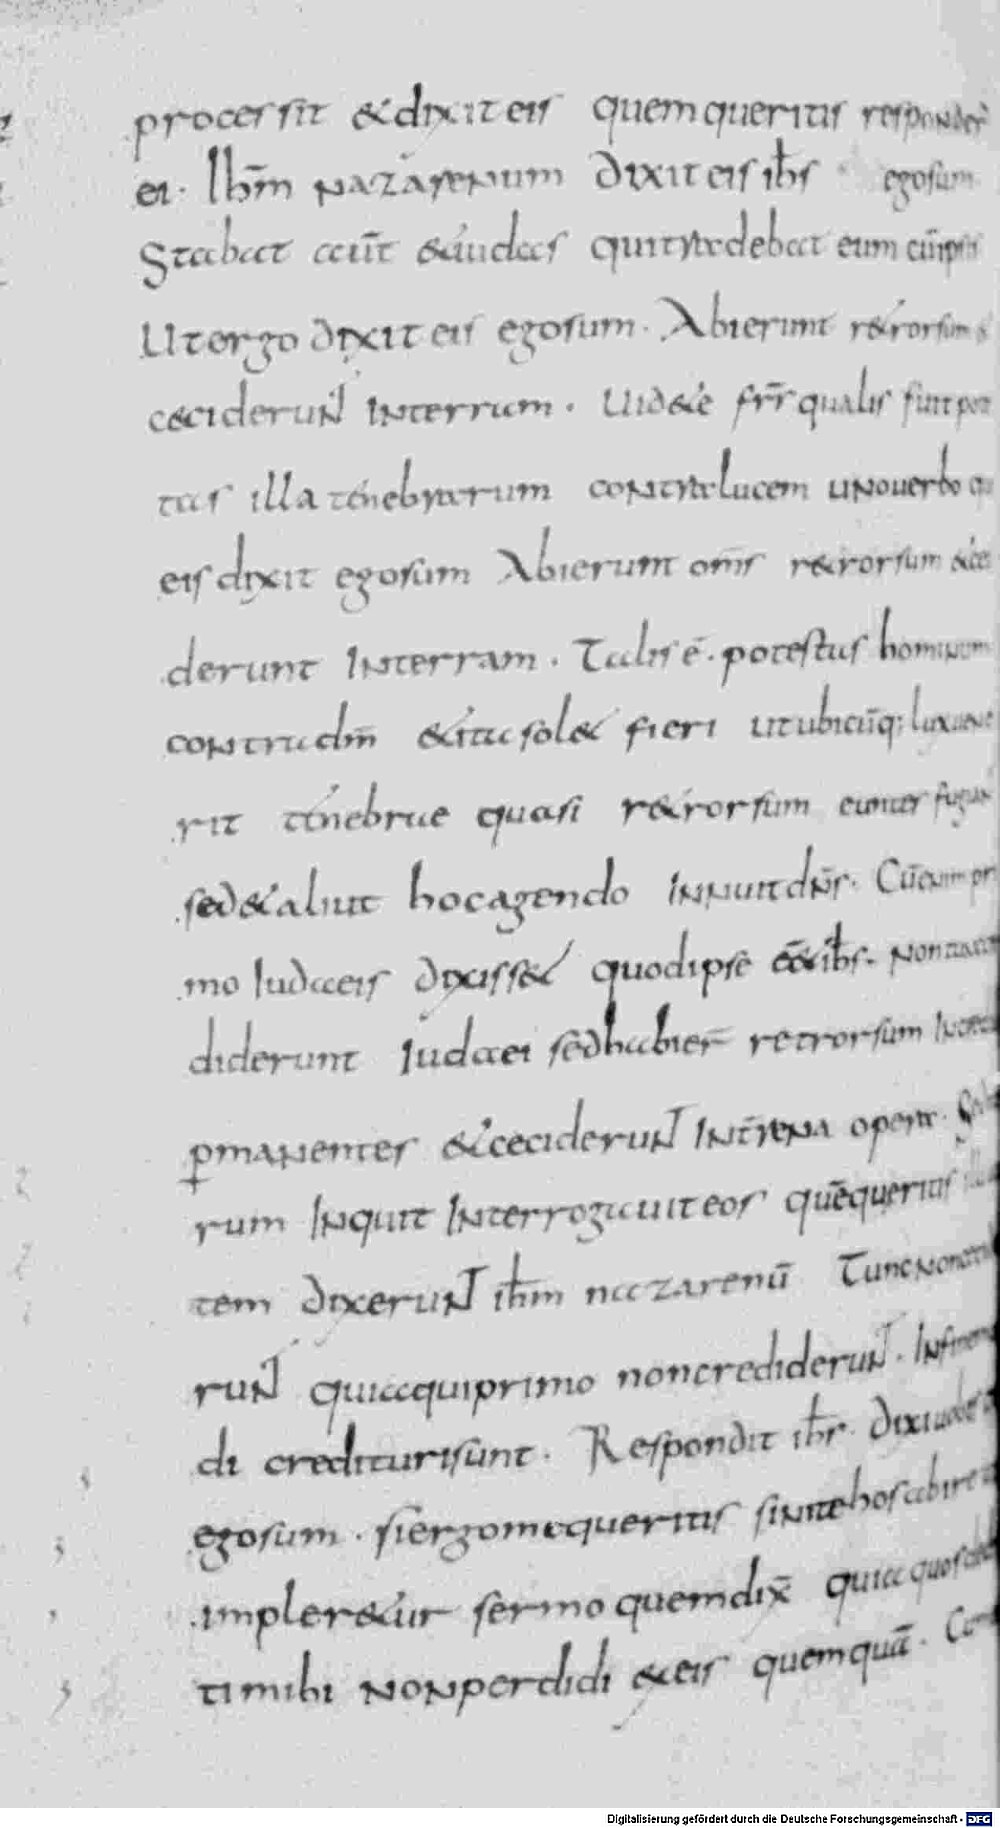 processit & dixit eis quem queritis responder̄
ei. Ihm̄ nazarenum dixit eis ihs̄ ego sum
Stabat aūt & iudas qui tradebat eum cū ipsis
Ut ergo dixit eis ego sum. Abierunt r&rorsum &
ceciderunt in terram. Uid&e frr̄ qualis fuit potes
tas illa tenebrarum contra lucem uno uerbo qu
eis dixit ego sum Abierunt om̄s r&rorsum & ceci
derunt in terram. Talis ē. potestas hominum
contra dm̄ & ita sol& fieri ut ubicūq; lux uene
rit tenebrae quasi r&rorsum eunter fugan
sed & aliut hoc agendo innuit dn̄s. Cū enim pri
mo Iudaeis dixiss& quod ipse ēē& ihs̄. non
diderunt Iudaei sed habier̄ retrorsum
ꝑmanentes & ceciderunt in trēna opera.
rum Inquit Interrogauit eos quē queritis
tem dixerunt ihm̄ nazarenū Tunc non
runt quia qui primo non crediderunt. In fine
di credituri sunt. Respondit ihs̄. dixi uobis
ego sum. si ergo me queritis sinite hos abire
impler&ur sermo quem dix̄ quia quos
ti mihi non perdidi & eis quemquā.
Digitalisierung gefördert durch die Deutsche Forschungsgemeinschaft - DFG